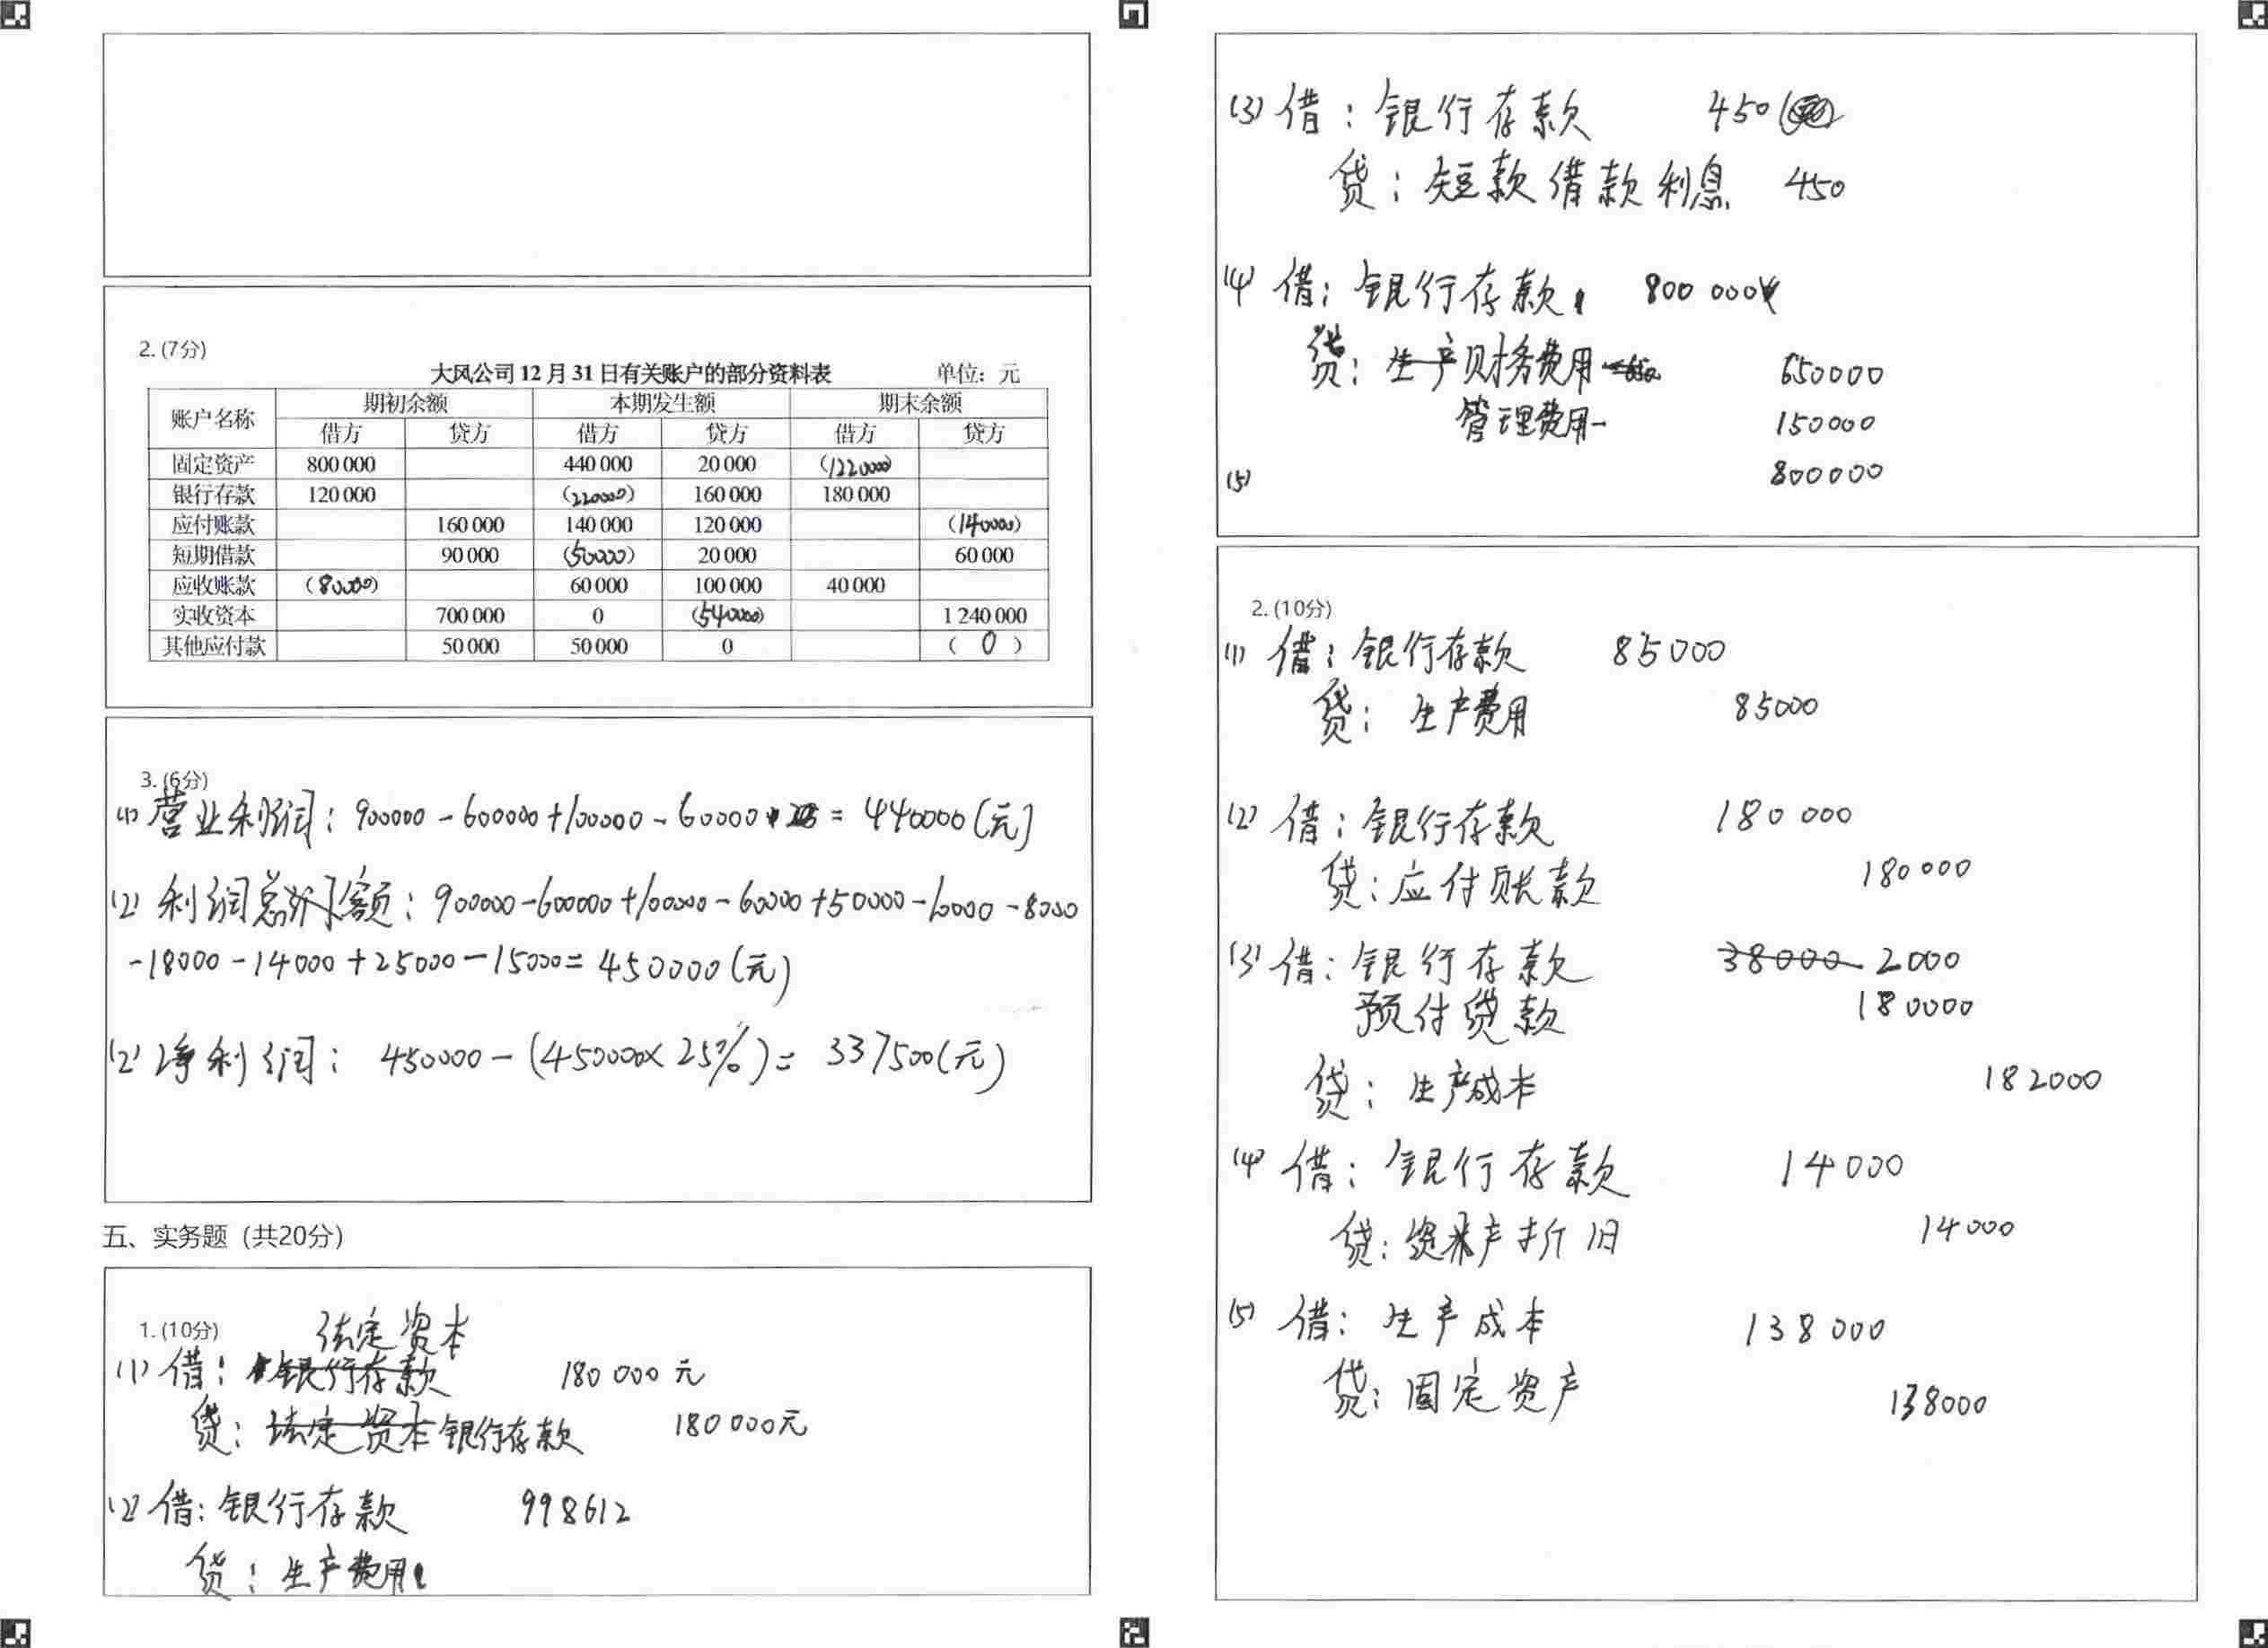 2. (7分)
大风公司12月31日有关账户的部分资料表 单位：元
账户名称 期初余额 本期发生额 期末余额
借方 贷方 借方 贷方 借方 贷方
固定资产 800 000 440 000 20 000 (1220000)
银行存款 120 000 (220000) 160 000 180 000
应付账款 160 000 140 000 120 000 (140000)
短期借款 90 000 (50000) 20 000 60 000
应收账款 (80000) 60 000 100 000 40 000
实收资本 700 000 0 (540000) 1 240 000
其他应付款 50 000 50 000 0 ( 0 )
3. (6分)
(1) 营业利润：900000-600000+100000-60000 = 440000(元)
(2) 利润总额：900000-600000+100000-60000+50000-10000-8000
-18000-14000+25000-15000=450000(元)
(2) 净利润： 450000-(450000×25%)= 337500(元)
五、实务题（共20分）
1. (10分) 法定资本
(1) 借：银行存款 180 000 元
贷：法定资本 银行存款 180 000元
(2) 借：银行存款 998612
贷：生产费用
(3) 借：银行存款 450
贷：短款借款利息 450
(4) 借：银行存款 800 000
贷：生产财务费用 650000
管理费用 150000
(5) 800000
2. (10分)
(1) 借：银行存款 85000
贷：生产费用 85000
(2) 借：银行存款 180 000
贷：应付账款 180000
(3) 借：银行存款 38000 2000
预付贷款 180000
贷：生产成本 182000
(4) 借：银行存款 14000
贷：资产折旧 14000
(5) 借：生产成本 138 000
贷：固定资产 138000